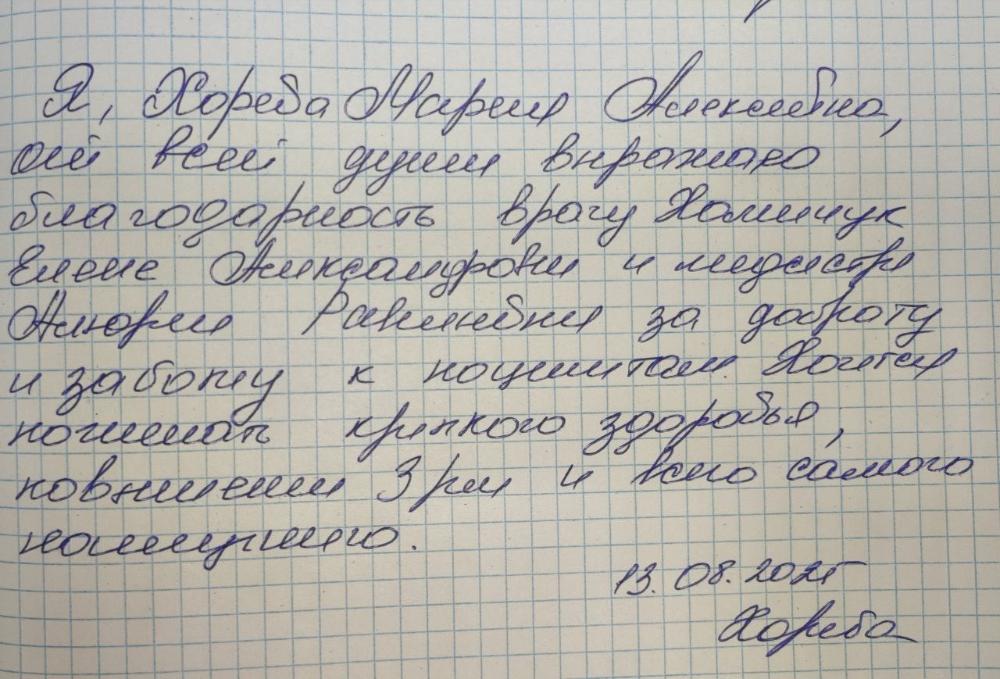 Я, Хорева Мария Алексеевна,
от всей души выражаю
благодарность врачу Хомичук
Елене Александровне и медсестре
за доброту
и заботу к пациентам. Хочется
пожелать крепкого здоровья,
повышения З/пл и всего самого
наилучшего.
13.08.2025
Хорева